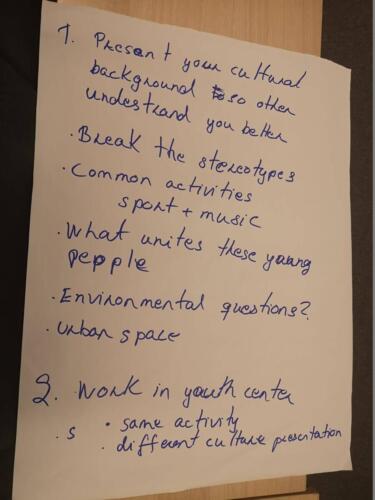 1. Present your cultural
background so other
undestrand you better
· Break the stereotypes
· Common activities
sport + music
· What unites these young
people
· Environmental questions?
· urban space
2. Work in youth center
· s · same activity
· different culture presentation